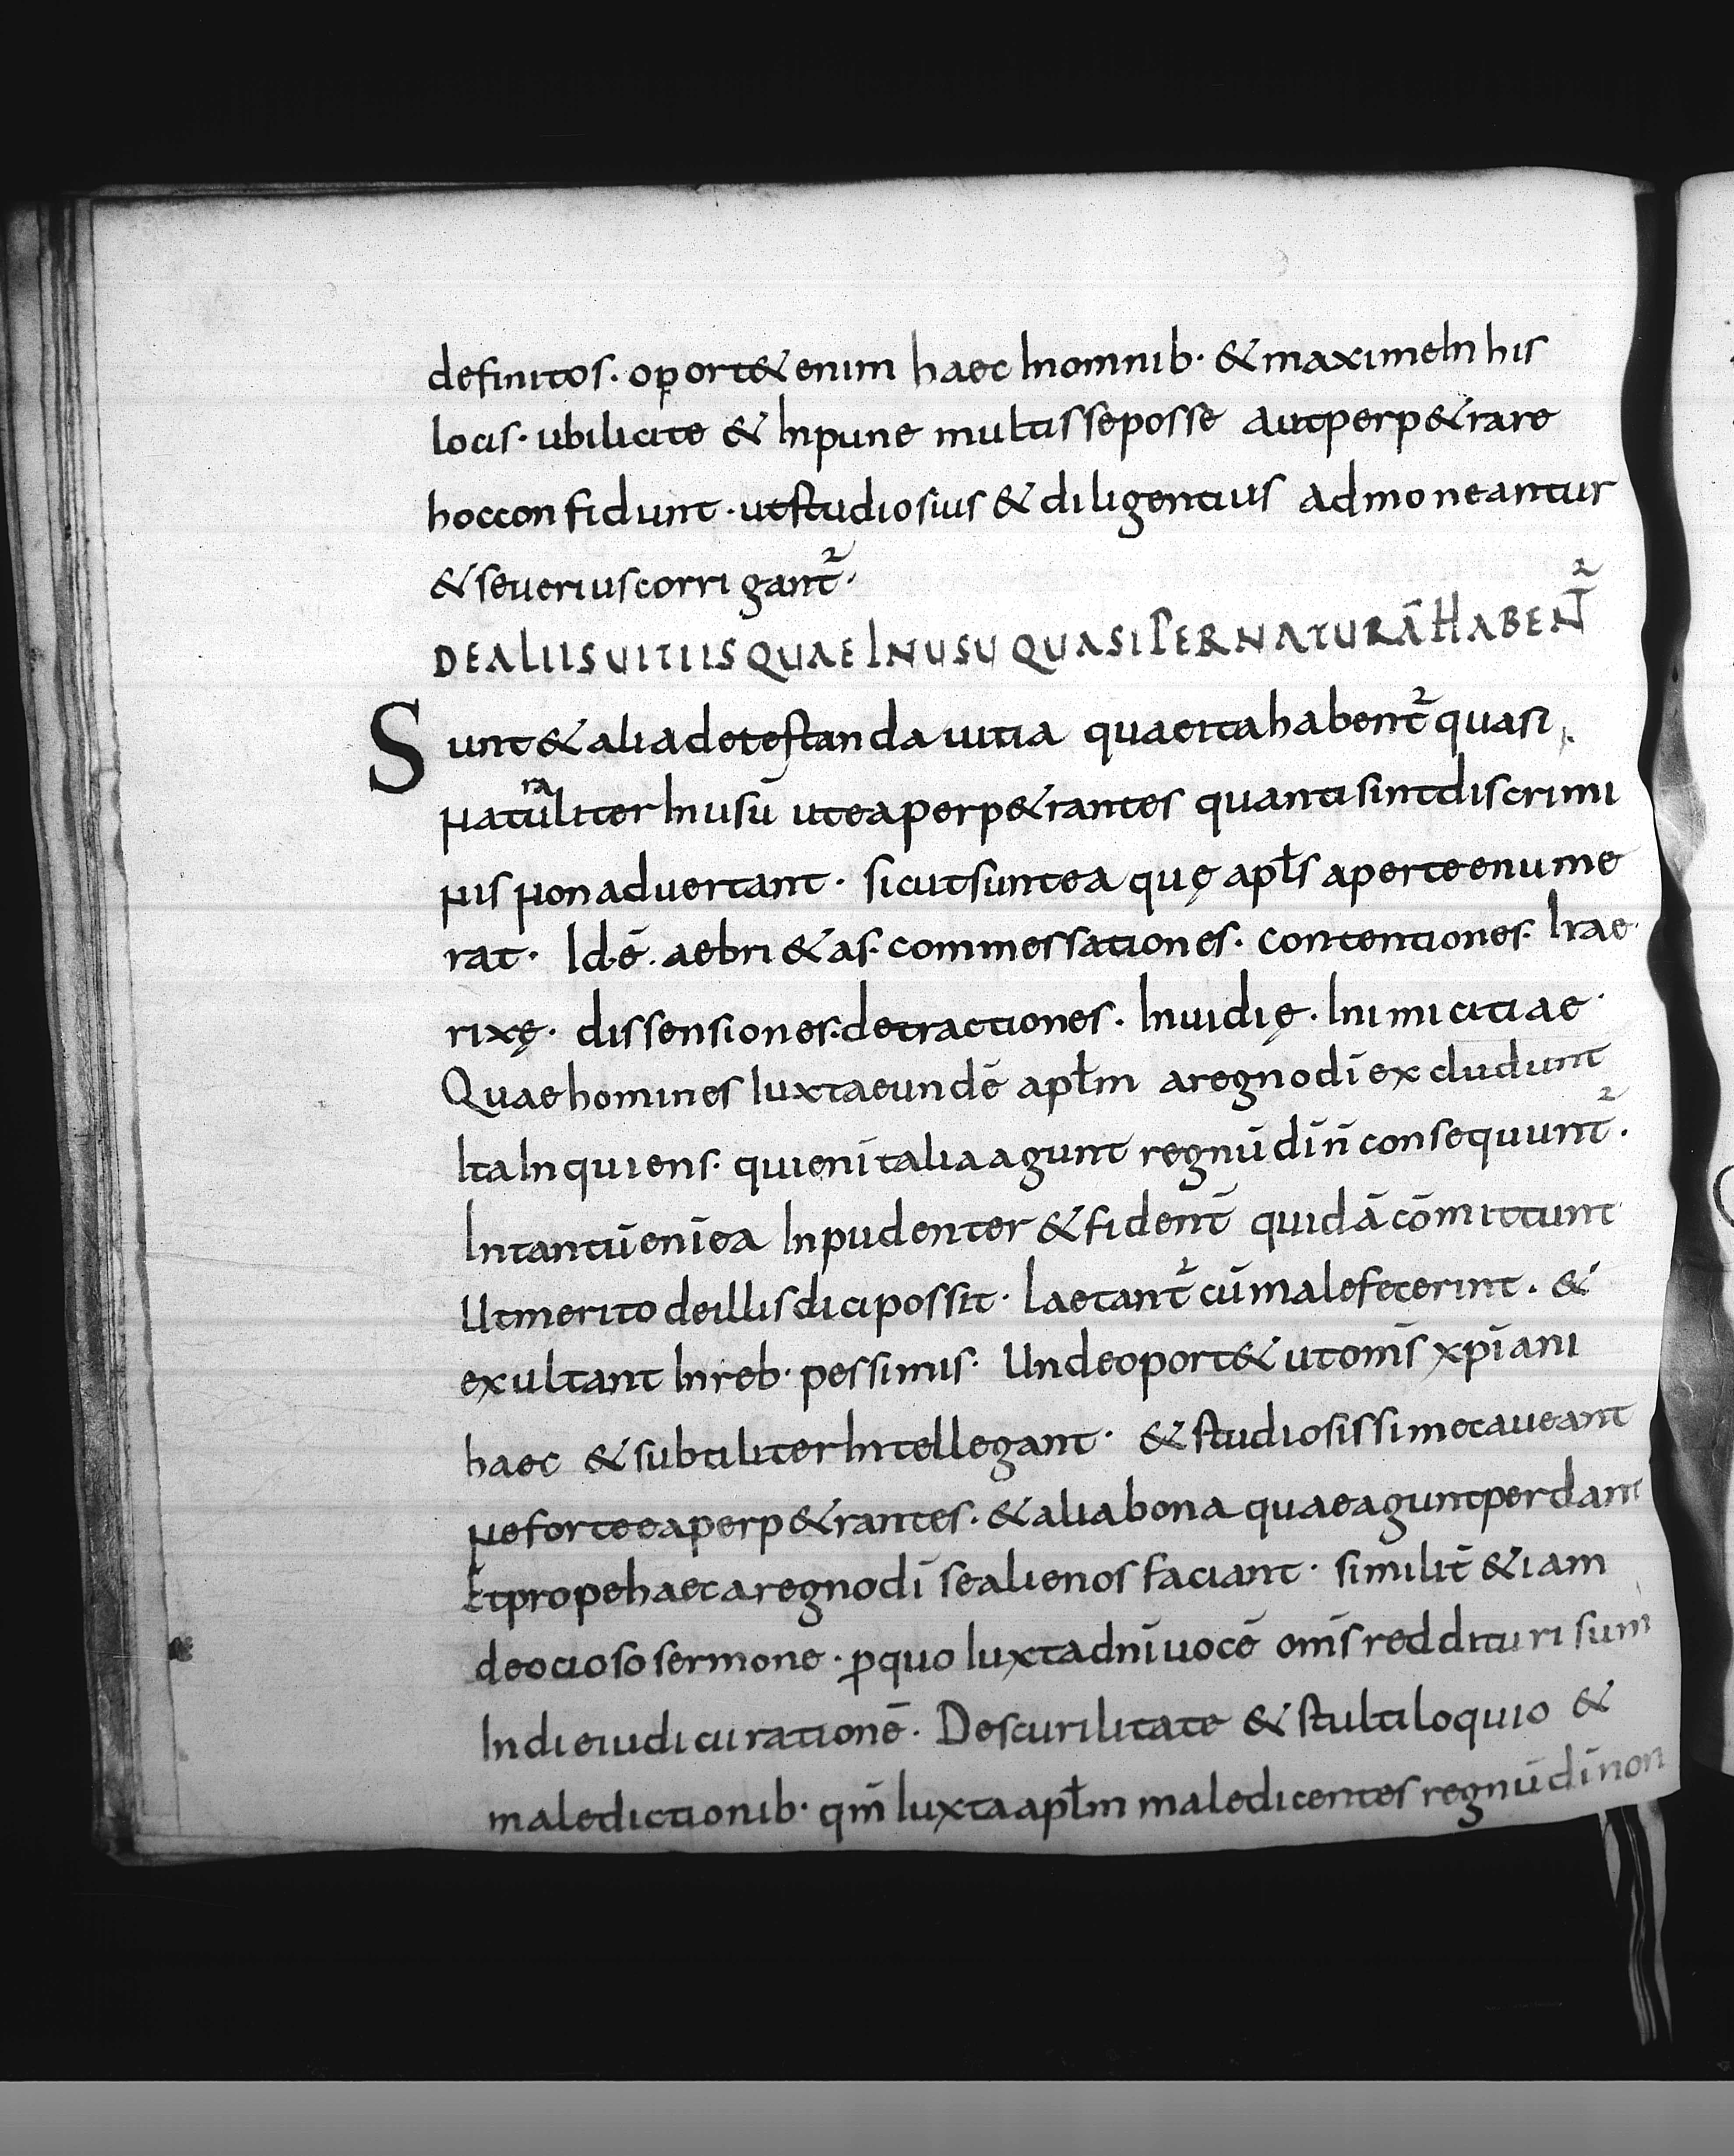 definitos. oport& enim haec Inomnib· & maximeIn his
locis· ubilicite & Inpune multis seposse autperp&rare
hocconfidunt · utstudiosius & diligentius admoneantur
& seueriuscorrigant̄²·
DEALIISUITIISQUAEINUSUQUASIPERNATURĀHABENT̄²
Sunt&aliadetestanda uitia quaeitahabent̄²quasi
naturaliter Inusū uteaperp&rantes quantisintdiscrimi
nis nonaduertant · sicutsuntea quę apłs aperteenume
rat· Id·ē· aebri&as· commessationes· contentiones· Irae·
rixę· dissensiones· detractiones· Inuidię· Inimicitiae·
Quaehomines Iuxtaeundē apłm aregnodī excludunt
ItaInquiens· quienī taliaagunt regnū dī n̄ consequunt̄²·
Intantūenīea Inpudenter & fident̄ quidā cōmittunt
Utmerito deillisdicipossit· Laetant̄² cūmalefecerint · &
exultant Inreb· pessimis· Undeoport& utom̄s xp̄iani
haec & subtiliterIntellegant· & studiosissimecaueant
neforteeaperp&rantes· & aliabona quaeaguntperdant
Etpropehaecaregnodī sealienos faciant· similit̄ &iam
deociososermone · ꝓquo Iuxtadn̄i uocē om̄s reddituri sunt
Indieiudicii rationē· Descurilitate & stultiloquio &
maledictionib· qm̄ Iuxtaapłm maledicentes regnū dī non